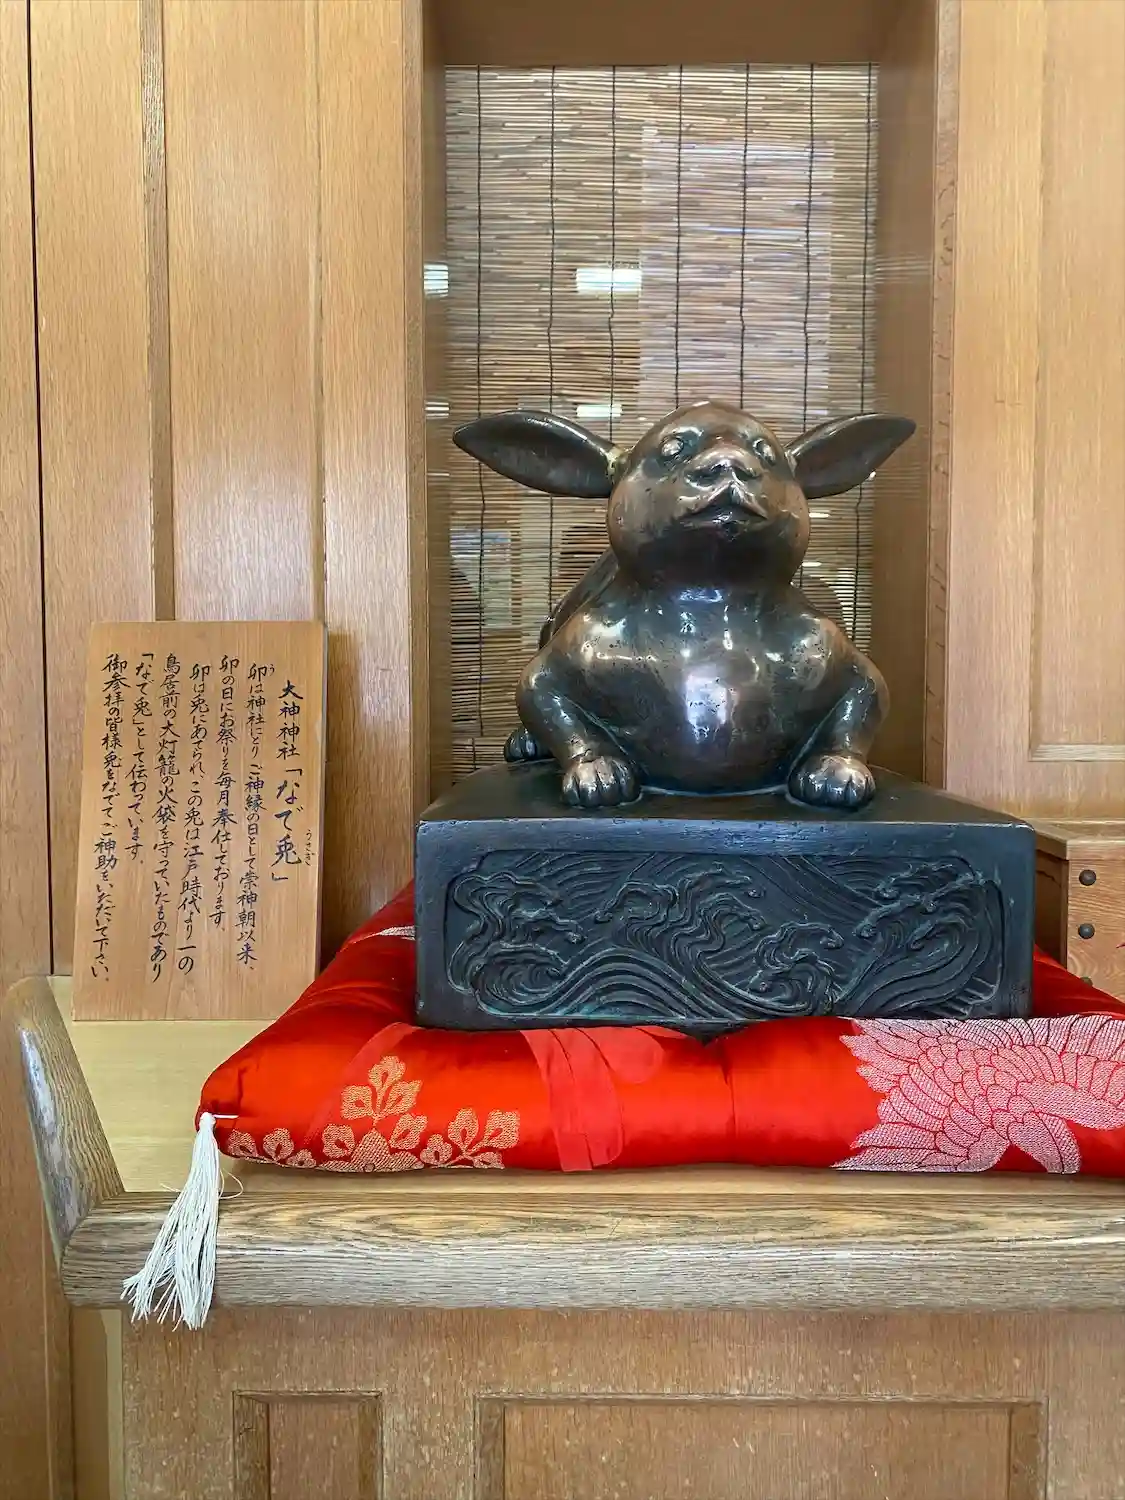 大神神社「なで兎」
うさぎ
卯は神社にとりご神縁の日として崇神朝以来、
う
卯の日にお祭りを毎月奉仕しております。
卯は兎にあてられ、この兎は江戸時代より一の
鳥居前の大灯籠の火袋を守っていたものであり
「なで兎」として伝わっています。
御参拝の皆様兎をなでてご神助をいただいて下さい。